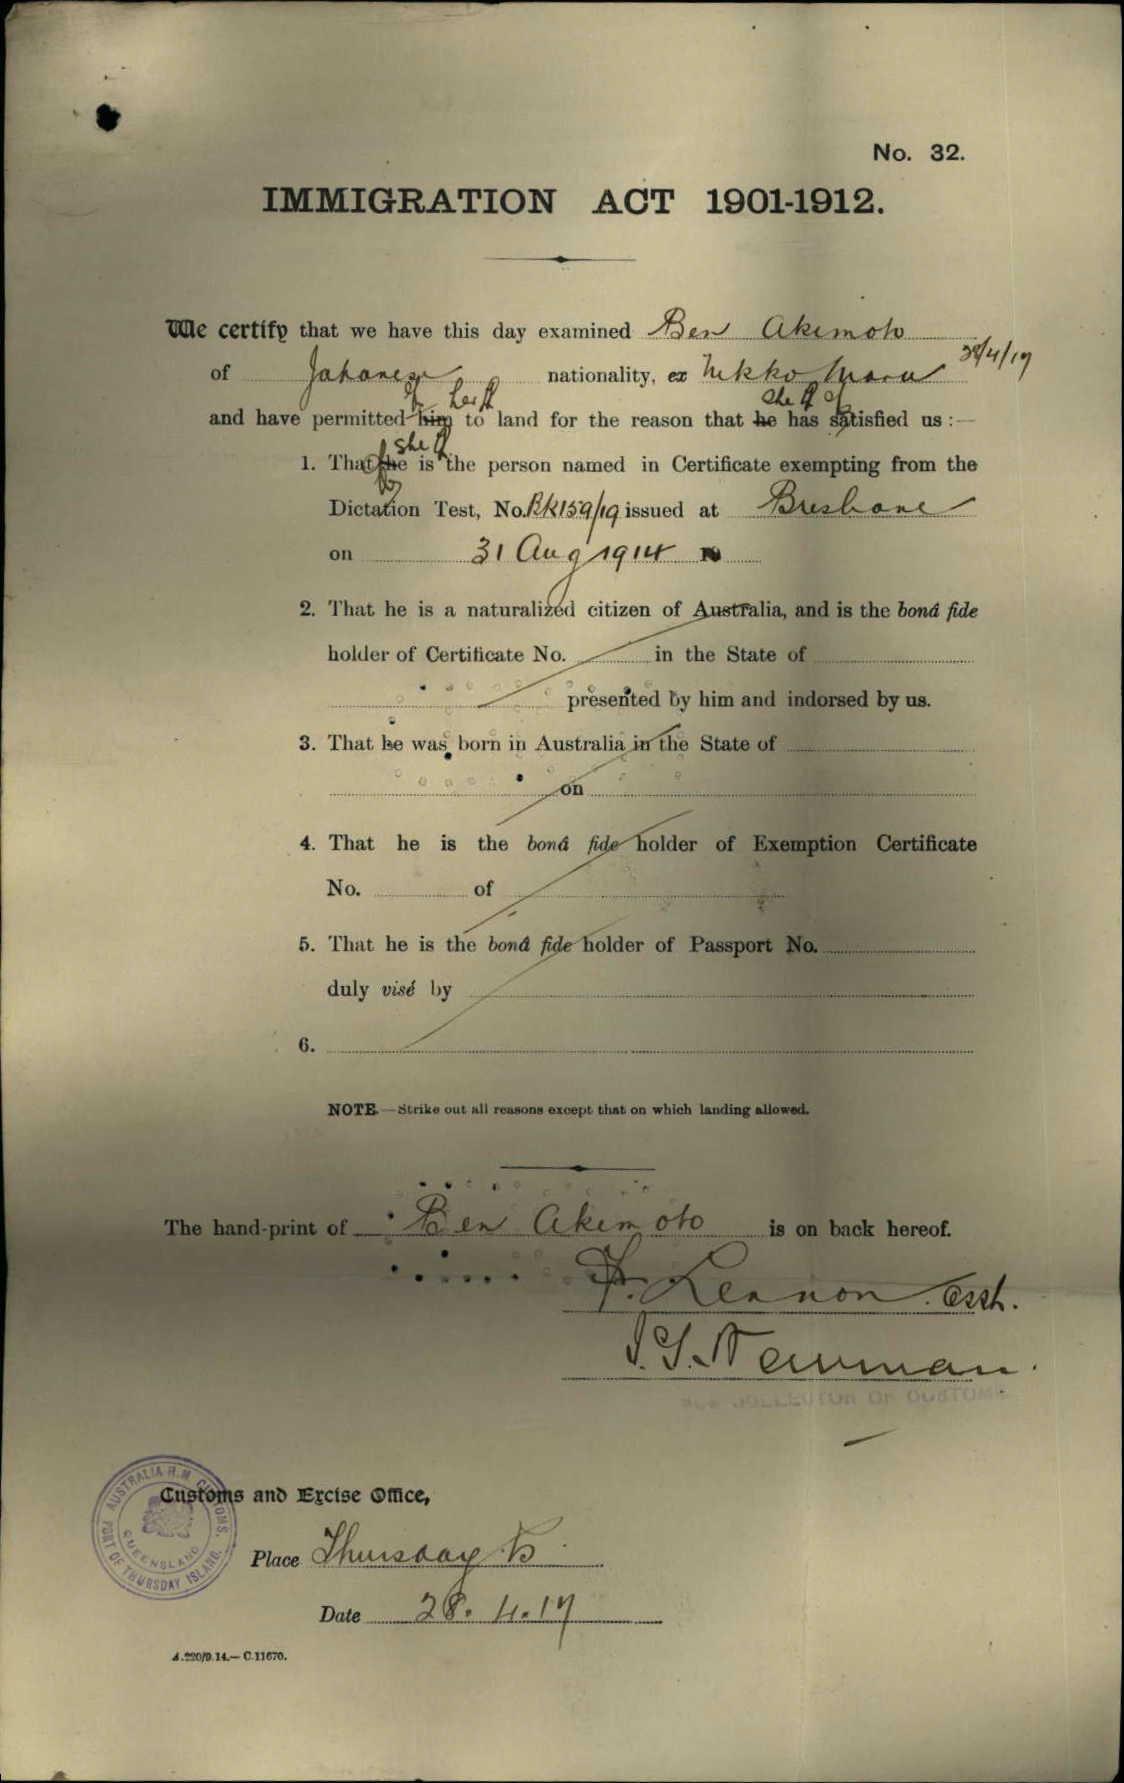 No. 32.
IMMIGRATION ACT 1901-1912.
We certify that we have this day examined Ben Akimoto
28/4/17
of Japanese nationality, ex Nikko Maru
her she
and have permitted him to land for the reason that he has satisfied us :—
she
1. That he is the person named in Certificate exempting from the
Dictation Test, No. issued at Brisbane
on 31 Aug 1914
2. That he is a naturalized citizen of Australia, and is the bonâ fide
holder of Certificate No. in the State of
presented by him and indorsed by us.
3. That he was born in Australia in the State of
on
4. That he is the bonâ fide holder of Exemption Certificate
No. of
5. That he is the bonâ fide holder of Passport No.
duly visé by
6.
NOTE.—Strike out all reasons except that on which landing allowed.
The hand-print of Ben Akimoto is on back hereof.
Lennon
Newman
COLLECTOR OF CUSTOMS
AUSTRALIA H.M. CUSTOMS.
QUEENSLAND
PORT OF THURSDAY ISLAND.
Customs and Excise Office,
Place Thursday Is
Date 28. 4. 17
A.220/9.14.—C.11670.